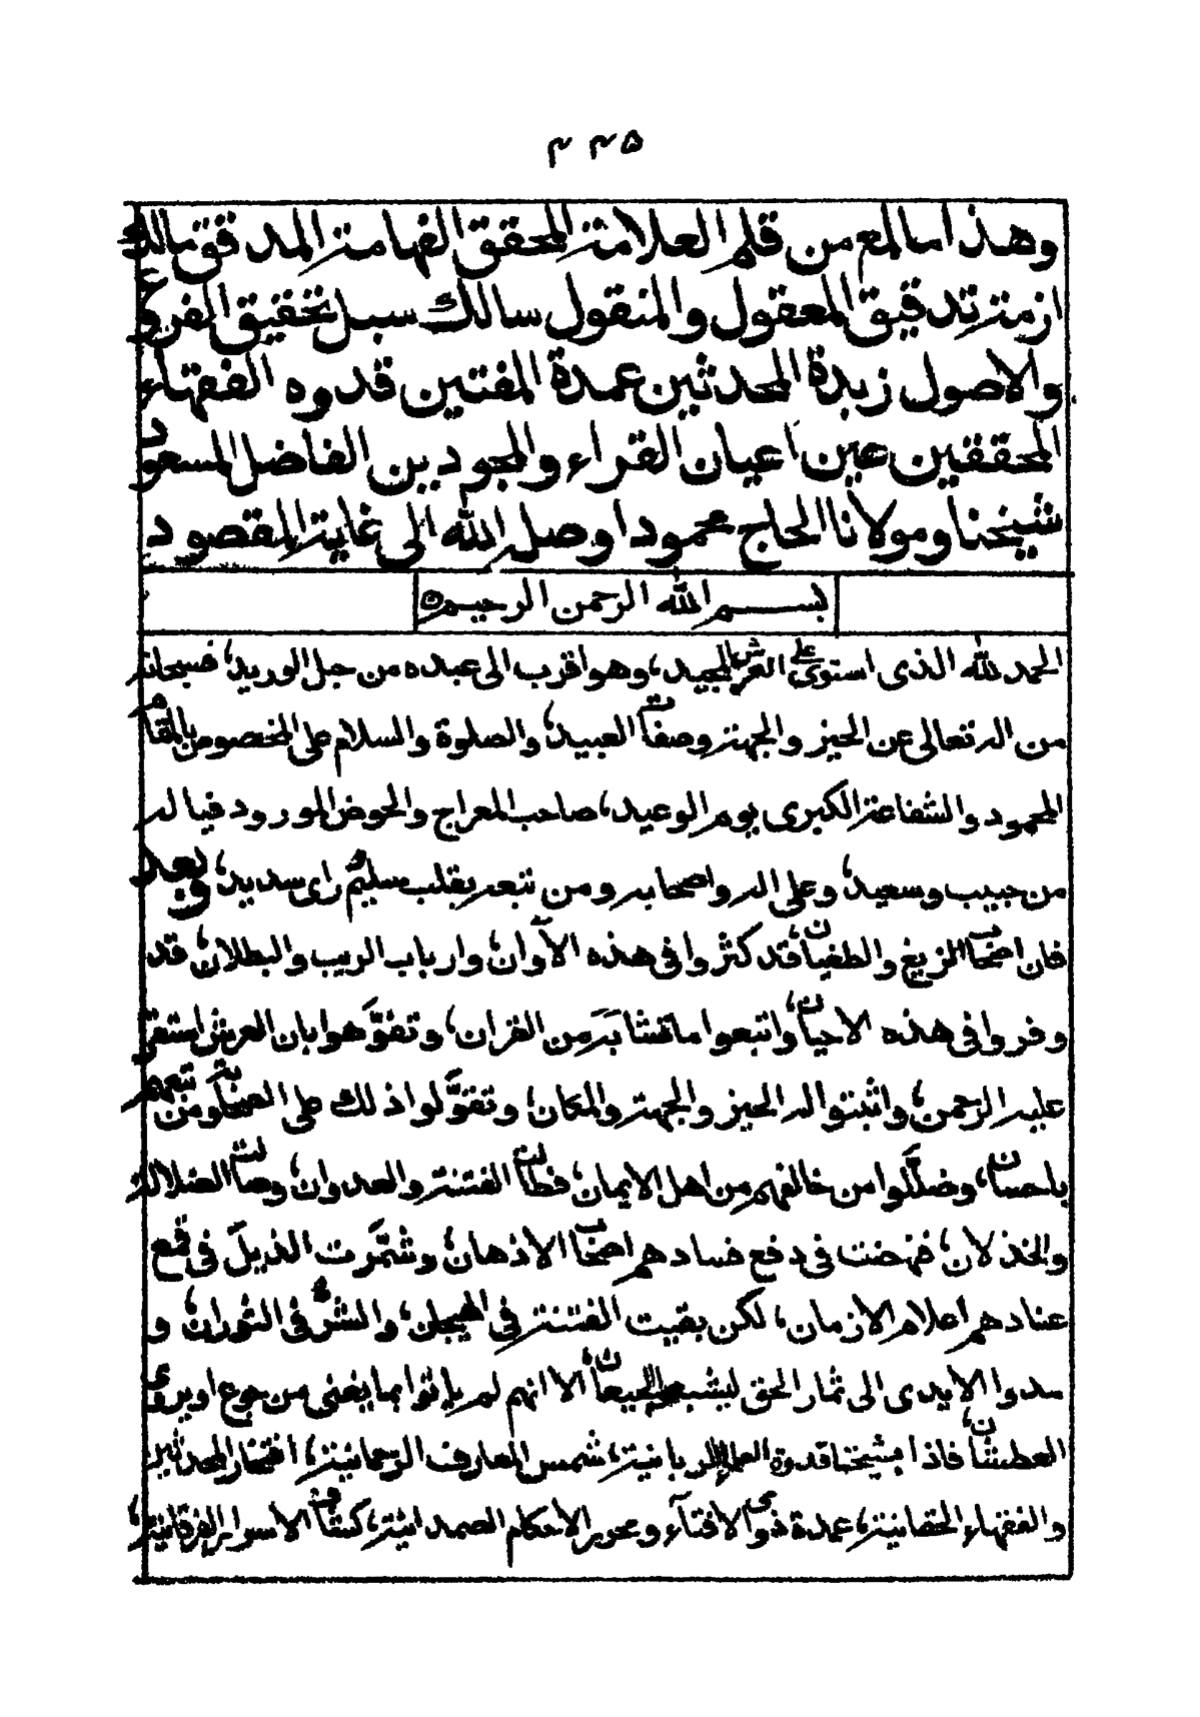 ۲۲۵
وهذا ما لمع من قلم العلامة المحقق الفهامة المدقق مالك
ازمة تدقيق المعقول والمنقول سالك سبل تحقيق الفروع
والاصول زبدة المحدثين عمدة المفتين قدوه الفقهاء
المحققين عين اعيان القراء والمجودين الفاضل المسعود
شيخنا ومولانا الحاج محمود اوصل الله الى غاية المقصود
بسم الله الرحمن الرحيم
الحمد لله الذى استوى على العرش المجيد، وهو اقرب الى عبده من حبل الوريد، فسبحانه
من اله تعالى عن الحيز والجهة وصفات العبيد، والصلوة والسلام على المخصوص بالمقام
المحمود والشفاعة الكبرى يوم الوعيد، صاحب المعراج والحوض المورود فيا له
من حبيب وسعيد، وعلى اله واصحابه ومن تبعه بقلب سليم وراى سديد، وبعد
فان اصحاب الزيغ والطغيان، قد كثروا فى هذه الآوان، وارباب الريب والبطلان، قد
وفروا فى هذه الاحيان، واتبعوا ما تشابه من القران، وتفوّهوا بان العرش استقر
عليه الرحمن، واثبتوا له الحيز والجهة والمكان، وتقوّلوا ذلك على الصحابة ومن تبعهم
باحسان، وضلّلوا من خالفهم من اهل الايمان، فطالت الفتنة والعدوان، وصالت الضلالة
والخذلان، فنهضت فى دفع فسادهم اصحاب الاذهان، وشمّرت الذيل فى قمع
عنادهم اعلام الازمان، لكن بقيت الفتنة فى الهيجان، والشر فى الثوران، و
مدوا الايدى الى ثمار الحق ليشبع الجيعان، الا انهم لم ياتوا بما يغنى من جوع او يروى
العطشان، فاذا بشيخنا قدوة العلماء الربانية، شمس المعارف الرحمانية، افتخار المحدثين
والفقهاء الحقانية، عمدة ذوى الافتآء ومحرر الاحكام الصمدانية، كشاف الاسرار الفرقانية،